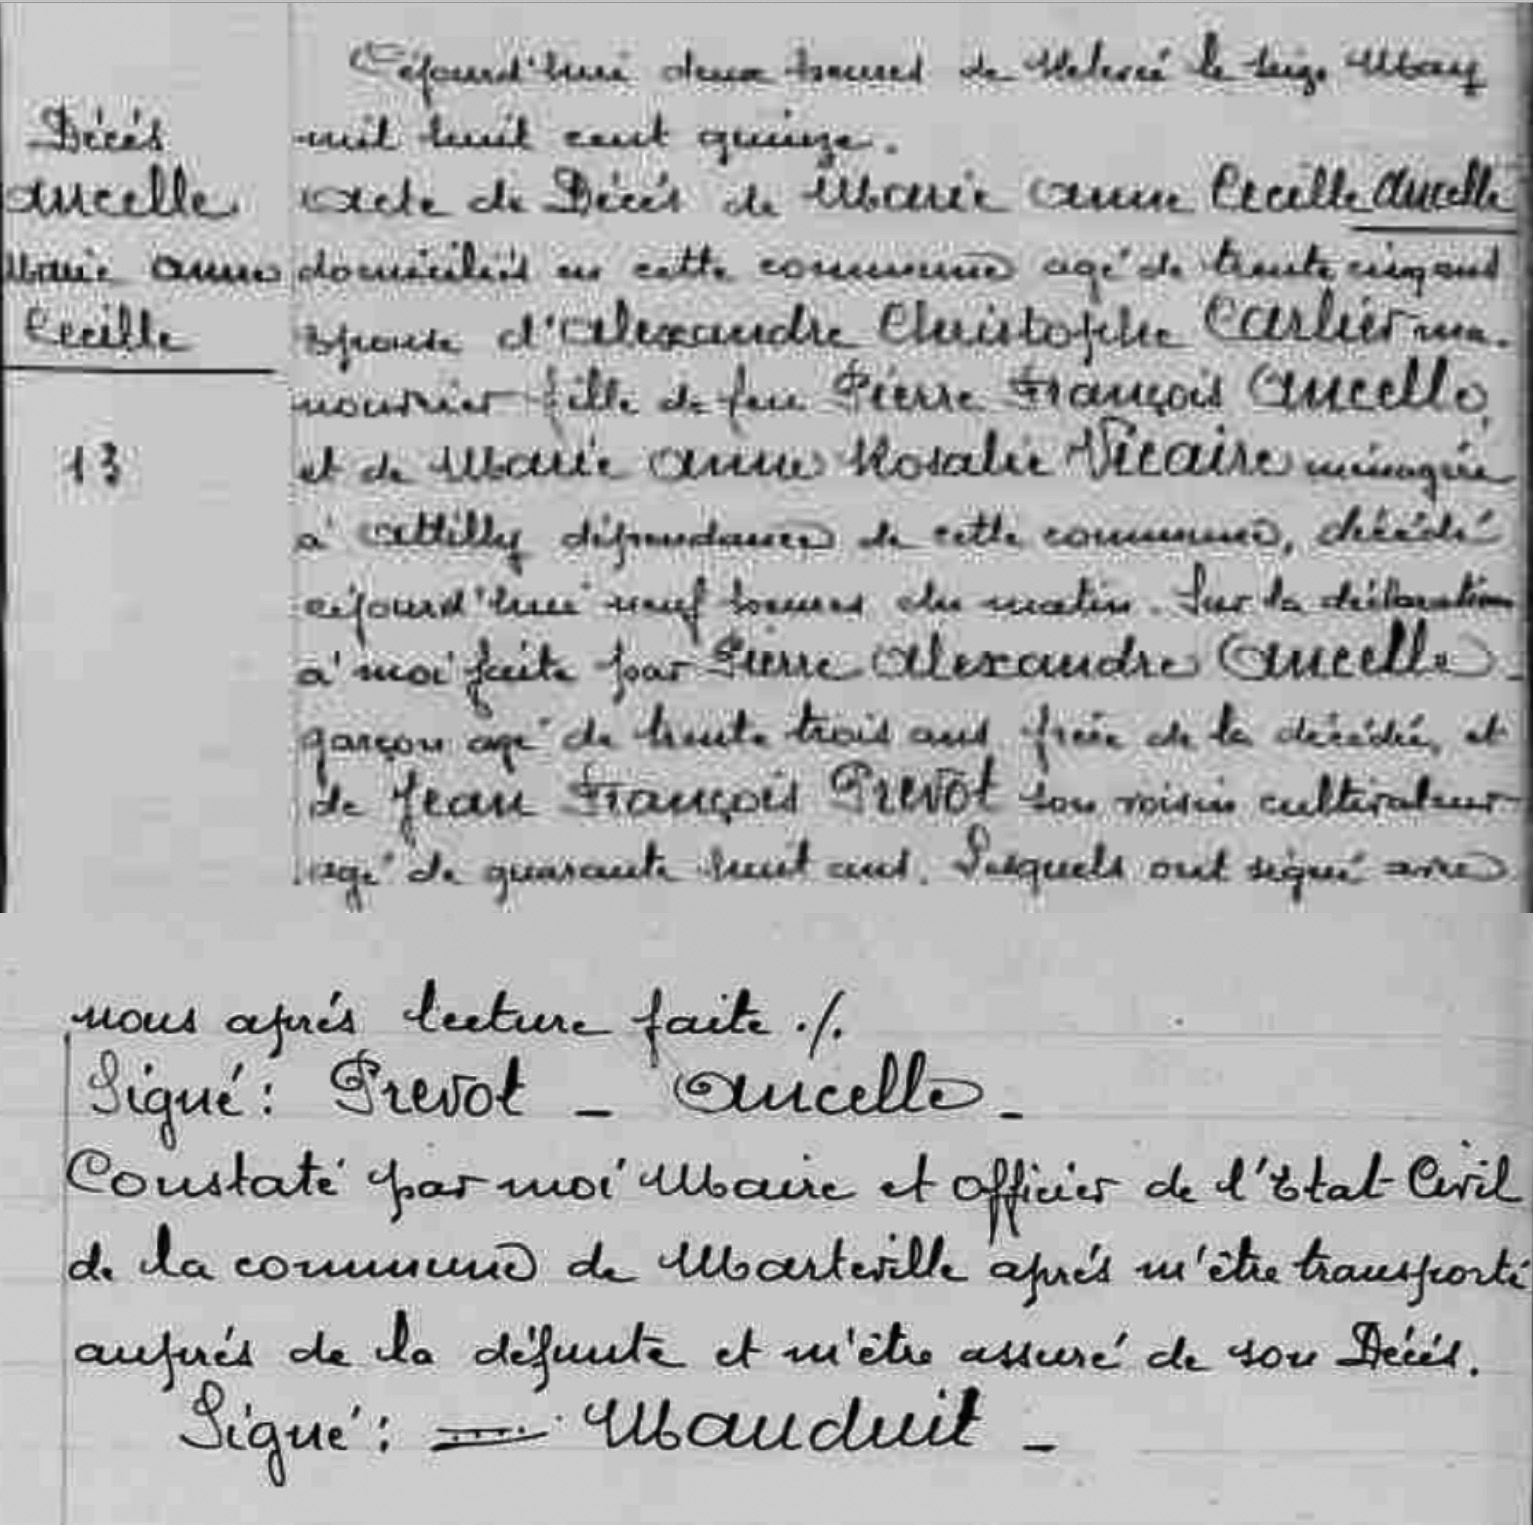 Céjourd'hui deux heures de Relevé le seize May
mil huit cent quinze.
Décés
Ancelle
Marie Anne
Cecille
13
Acte de Décés de Marie Anne Cecille Ancelle
domiciliés en cette commune agé de trente cinq ans
épouse d'Alexandre Christophe Carlier ma-
nouvrier fille de feu Pierre François Ancelle
et de Marie Anne Rosalie Vicaire ménagére
à Attilly dépendance de cette commune, décédé
céjourd'hui neuf heures du matin. Sur la déclaration
a moi faite par Pierre Alexandre Ancelle -
garçon agé de trente trois ans frére de la décédée, et
de Jean François Prevôt son voisin cultivateur
agé de quarante huit ans. Lesquels ont signé avec
nous aprés lecture faite ./.
Signé: Prevot - Ancelle -
Constaté par moi Maire et officier de l'Etat Civil
de la commune de Marteville aprés m'être transporté
auprés de la défunte et m'être assuré de son Décés.
Signé: = Mauduit -